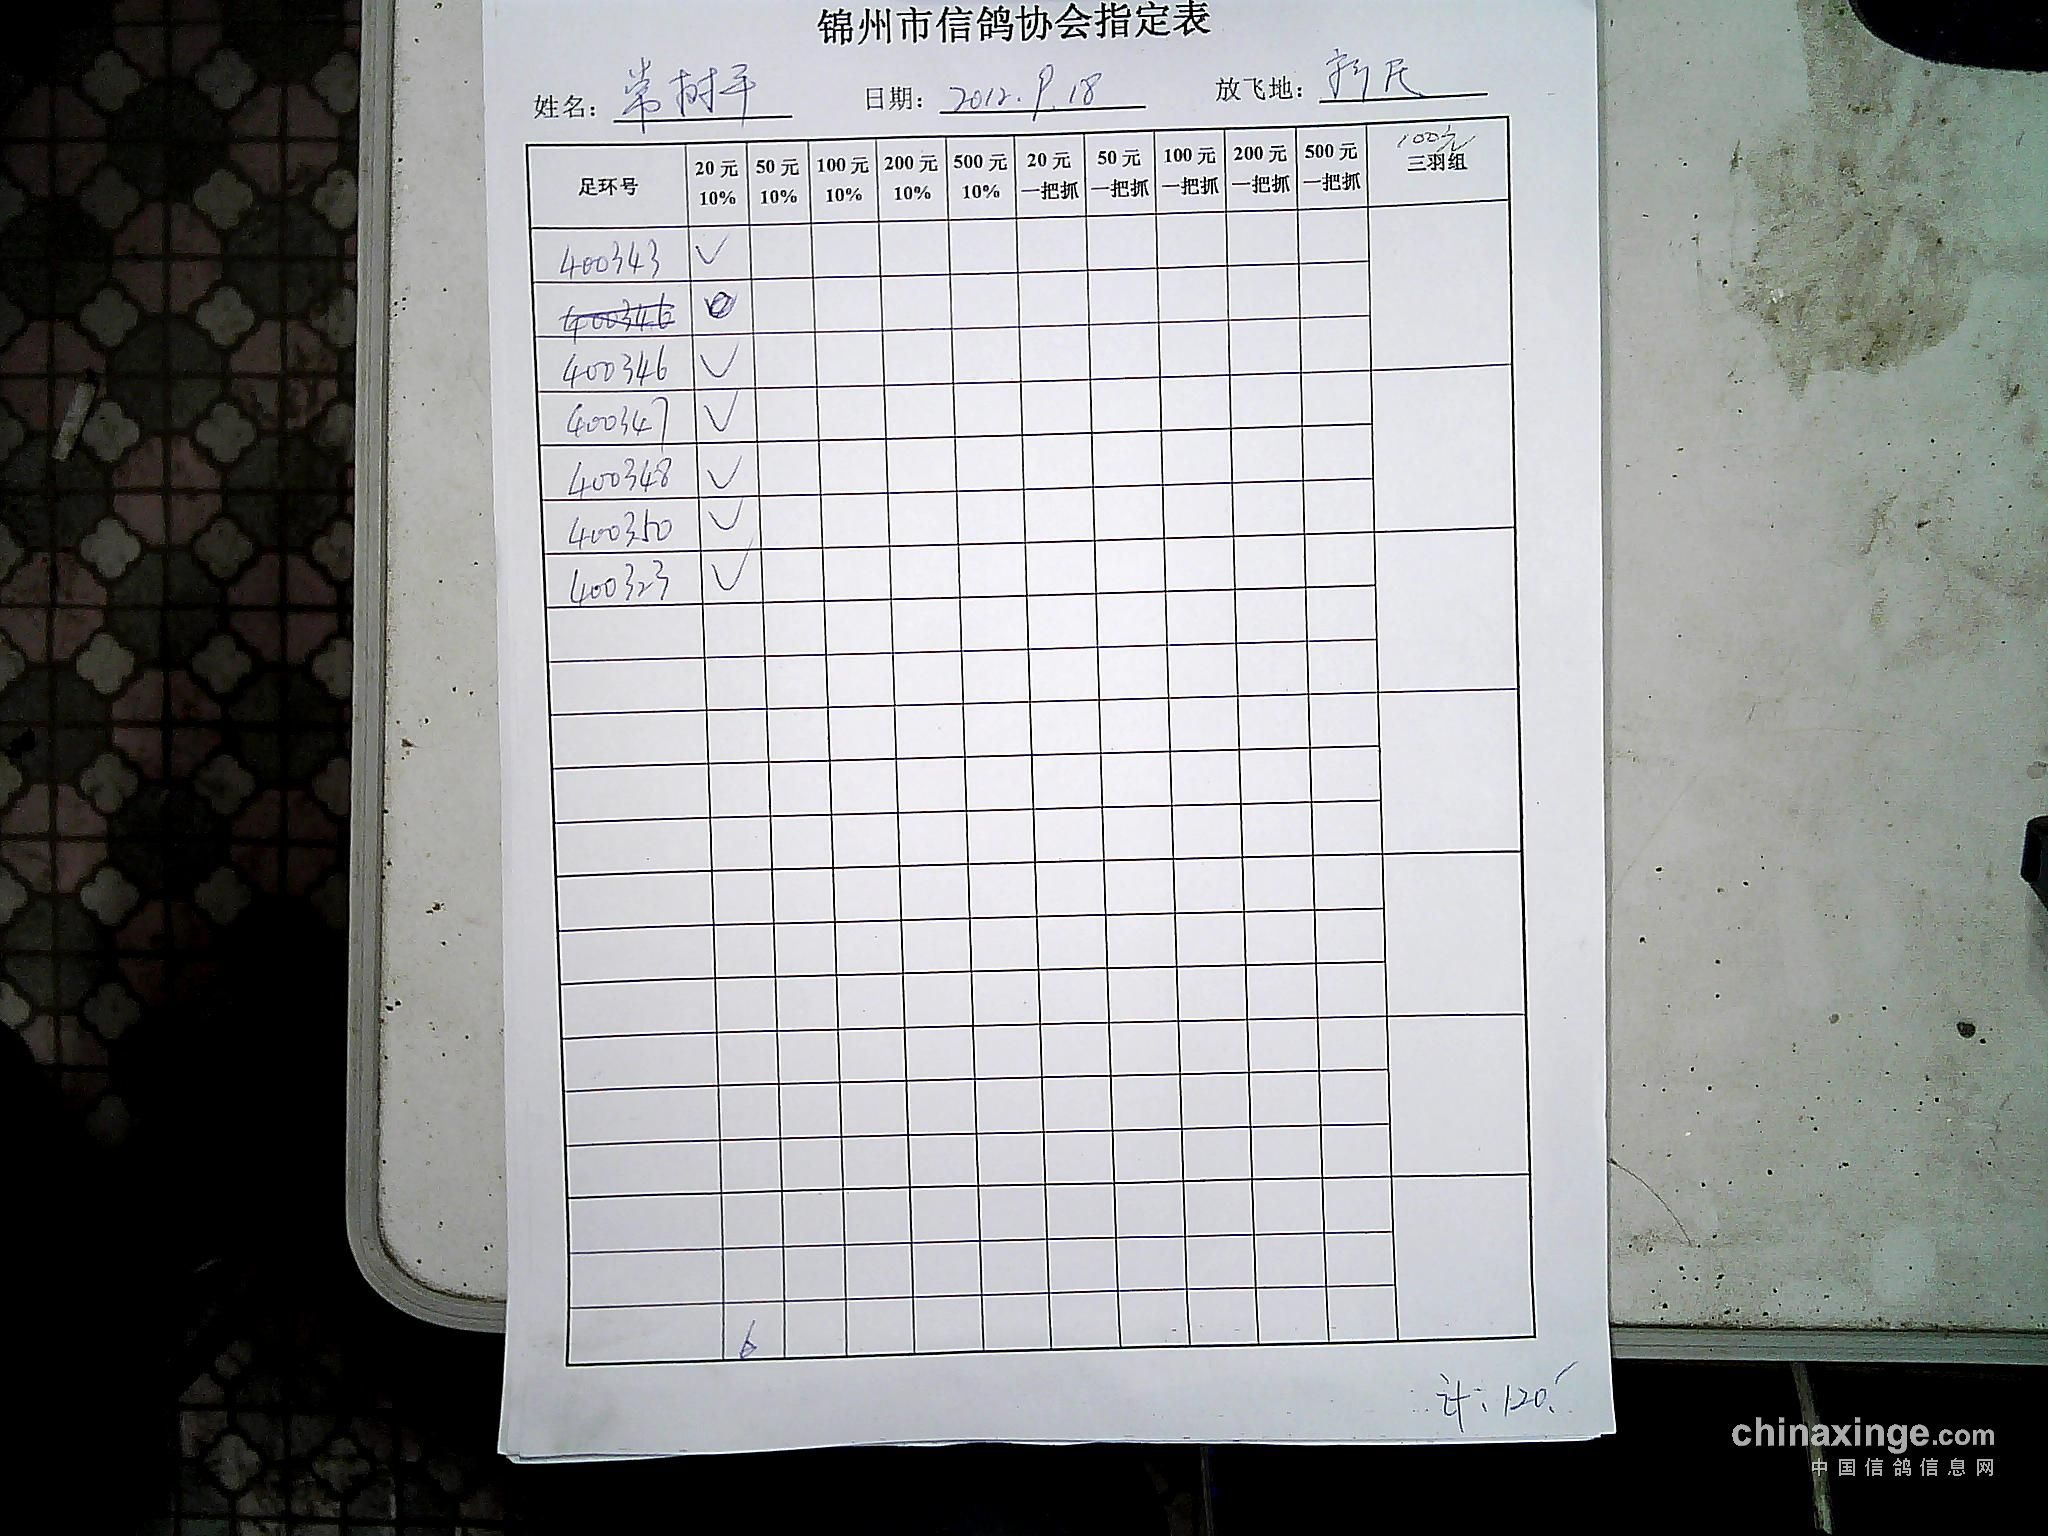 锦州市信鸽协会指定表
姓名: 常树平 日期: 2012.9.18 放飞地: 新民
足环号 20元 10% 50元 10% 100元 10% 200元 10% 500元 10% 20元 一把抓 50元 一把抓 100元 一把抓 200元 一把抓 500元 一把抓 100元 三羽组
400343 ✓
400346
400346 ✓
400347 ✓
400348 ✓
400350 ✓
400323 ✓
6
计: 120.
chinaxinge.com
中国信鸽信息网